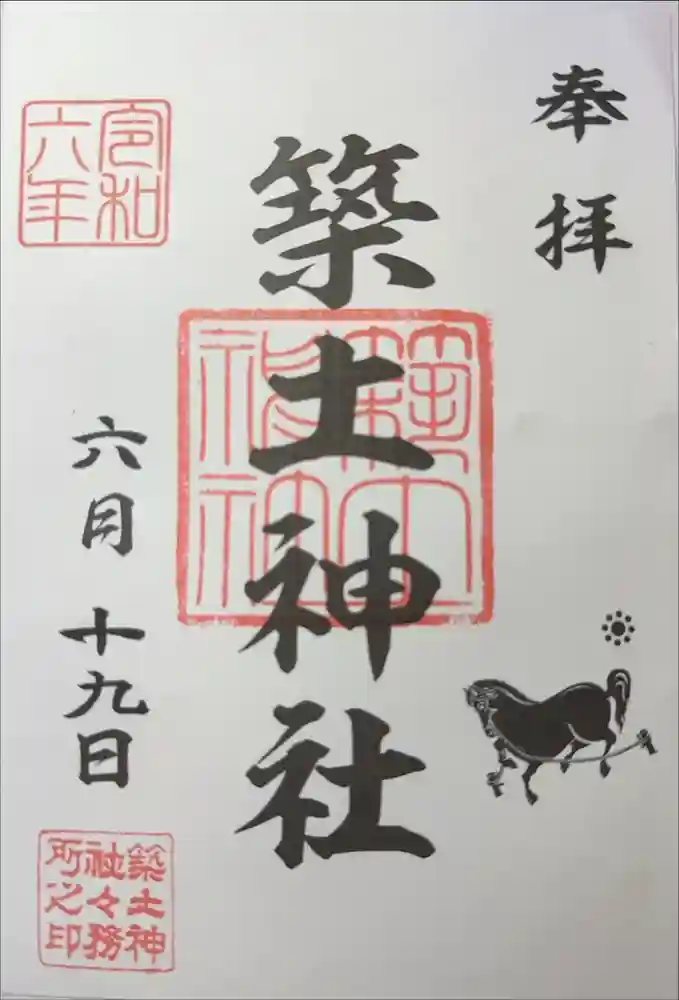 奉拝
築土神社
築土神社
令和六年
六月十九日
築土神社々務所之印